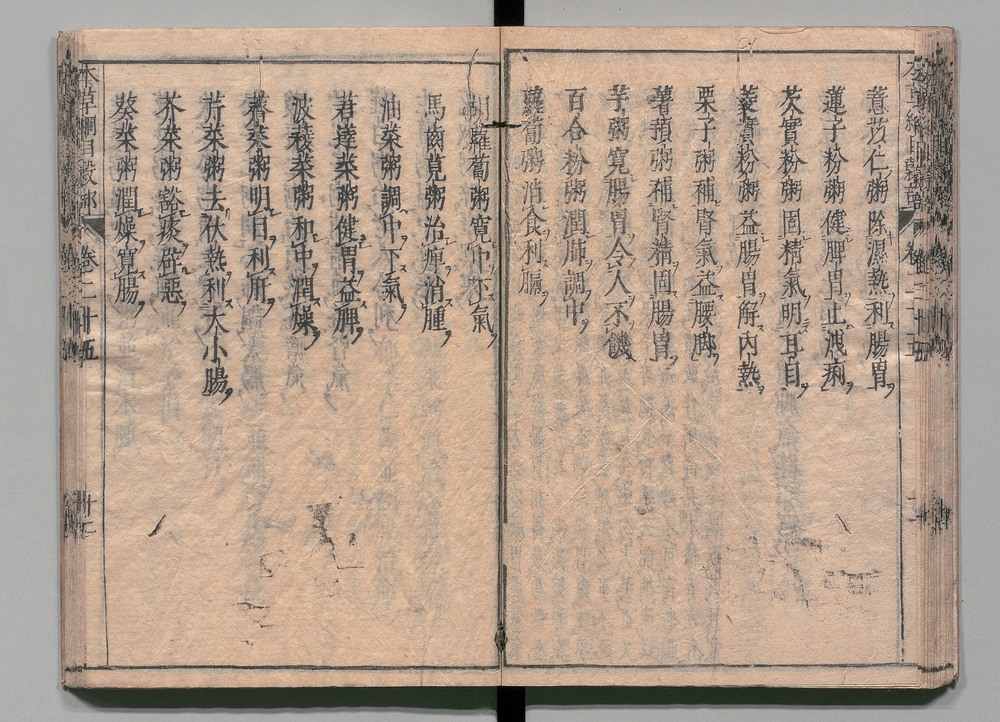 薏苡仁粥除濕熱利腸胃
蓮子粉粥健脾胃止洩痢
芡實粉粥固精氣明耳目
菱實粉粥益腸胃解內熱
栗子粥補腎氣益腰脚
薯蕷粥補腎精固腸胃
芋粥寬腸胃令人不饑
百合粉粥潤肺調中
蘿蔔粥消食利膈
胡蘿蔔粥寬中下氣
馬齒莧粥治痺消腫
油菜粥調中下氣
莙薘菜粥健胃益脾
波薐菜粥和中潤燥
薺菜粥明目利肝
芹菜粥去伏熱利大小腸
芥菜粥豁痰辟惡
葵菜粥潤燥寬腸
本草綱目穀部 卷二十五